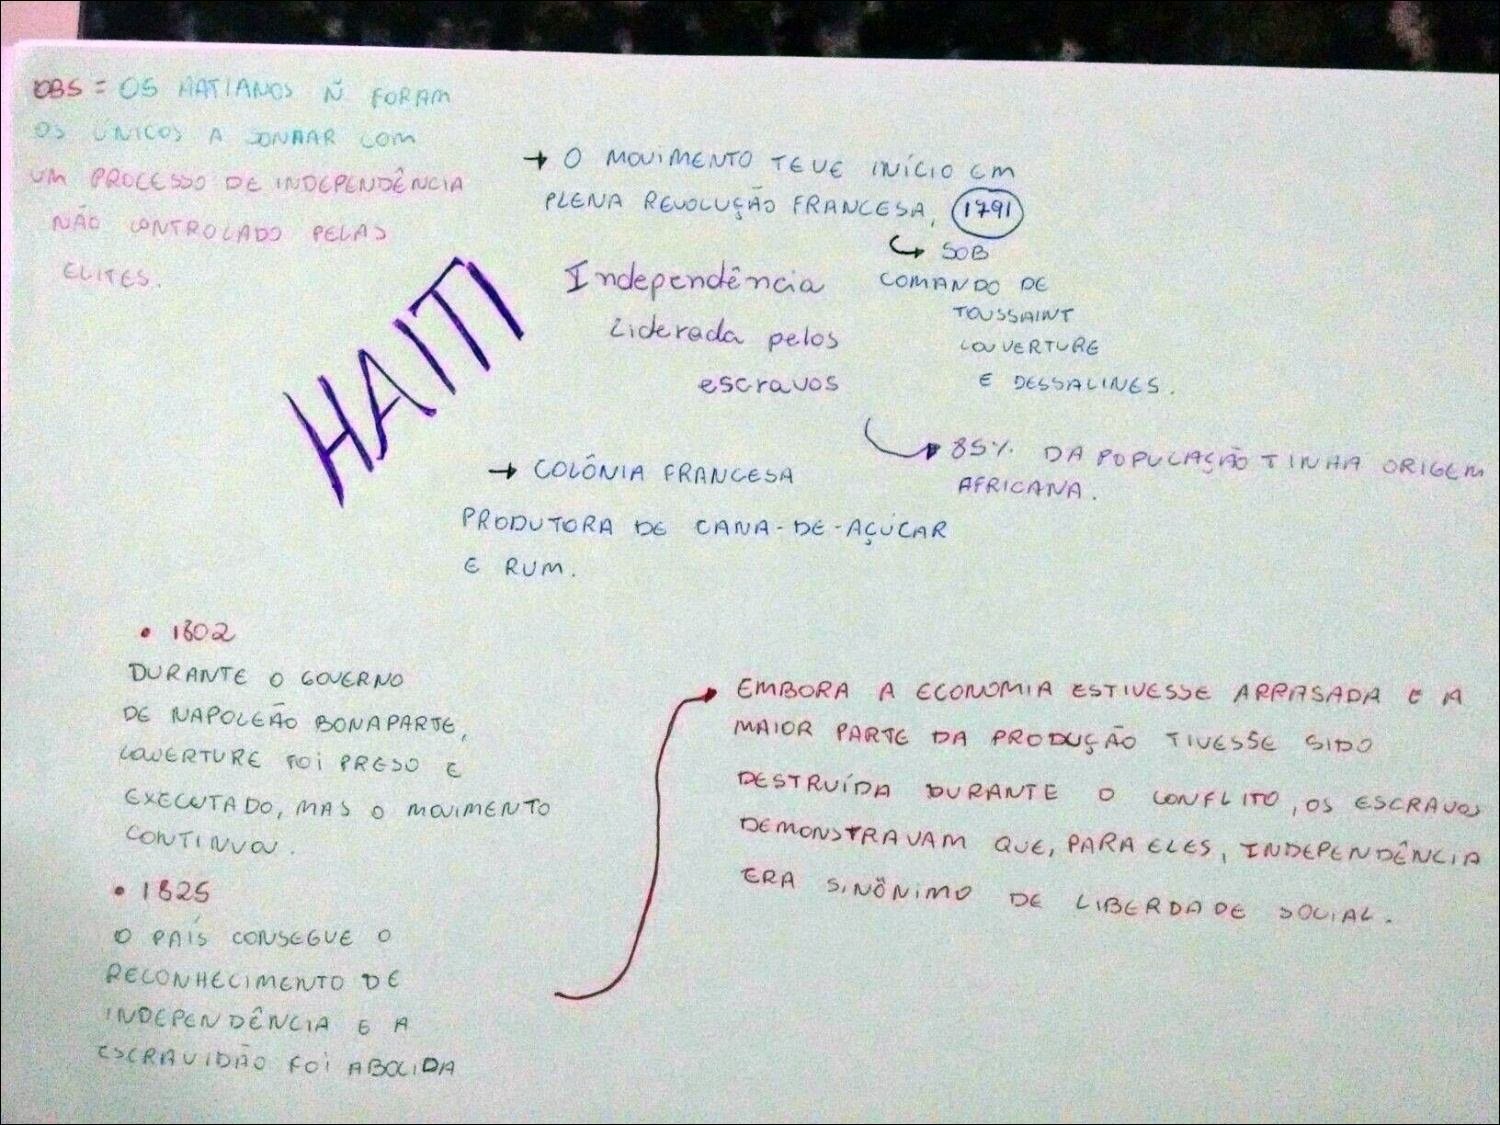 OBS = OS HATIANOS Ñ FORAM
OS ÚNICOS A SONHAR COM
UM PROCESSO DE INDEPENDÊNCIA
NÃO CONTROLADO PELAS
ELITES.
HAITI
→ O MOVIMENTO TEVE INÍCIO EM
PLENA REVOLUÇÃO FRANCESA, 1791
↪ SOB
COMANDO DE
TOUSSAINT
LOUVERTURE
E DESSALINES.
Independência
Liderada pelos
escravos
→ 85% DA POPULAÇÃO TINHA ORIGEM
AFRICANA.
→ COLÔNIA FRANCESA
PRODUTORA DE CANA-DE-AÇÚCAR
E RUM.
• 1802
DURANTE O GOVERNO
DE NAPOLEÃO BONAPARTE,
LOUVERTURE FOI PRESO E
EXECUTADO, MAS O MOVIMENTO
CONTINUOU.
• 1825
O PAÍS CONSEGUE O
RECONHECIMENTO DE
INDEPENDÊNCIA E A
ESCRAVIDÃO FOI ABOLIDA
→ EMBORA A ECONOMIA ESTIVESSE ARRASADA E A
MAIOR PARTE DA PRODUÇÃO TIVESSE SIDO
DESTRUÍDA DURANTE O CONFLITO, OS ESCRAVOS
DEMONSTRAVAM QUE, PARA ELES, INDEPENDÊNCIA
ERA SINÔNIMO DE LIBERDADE SOCIAL.